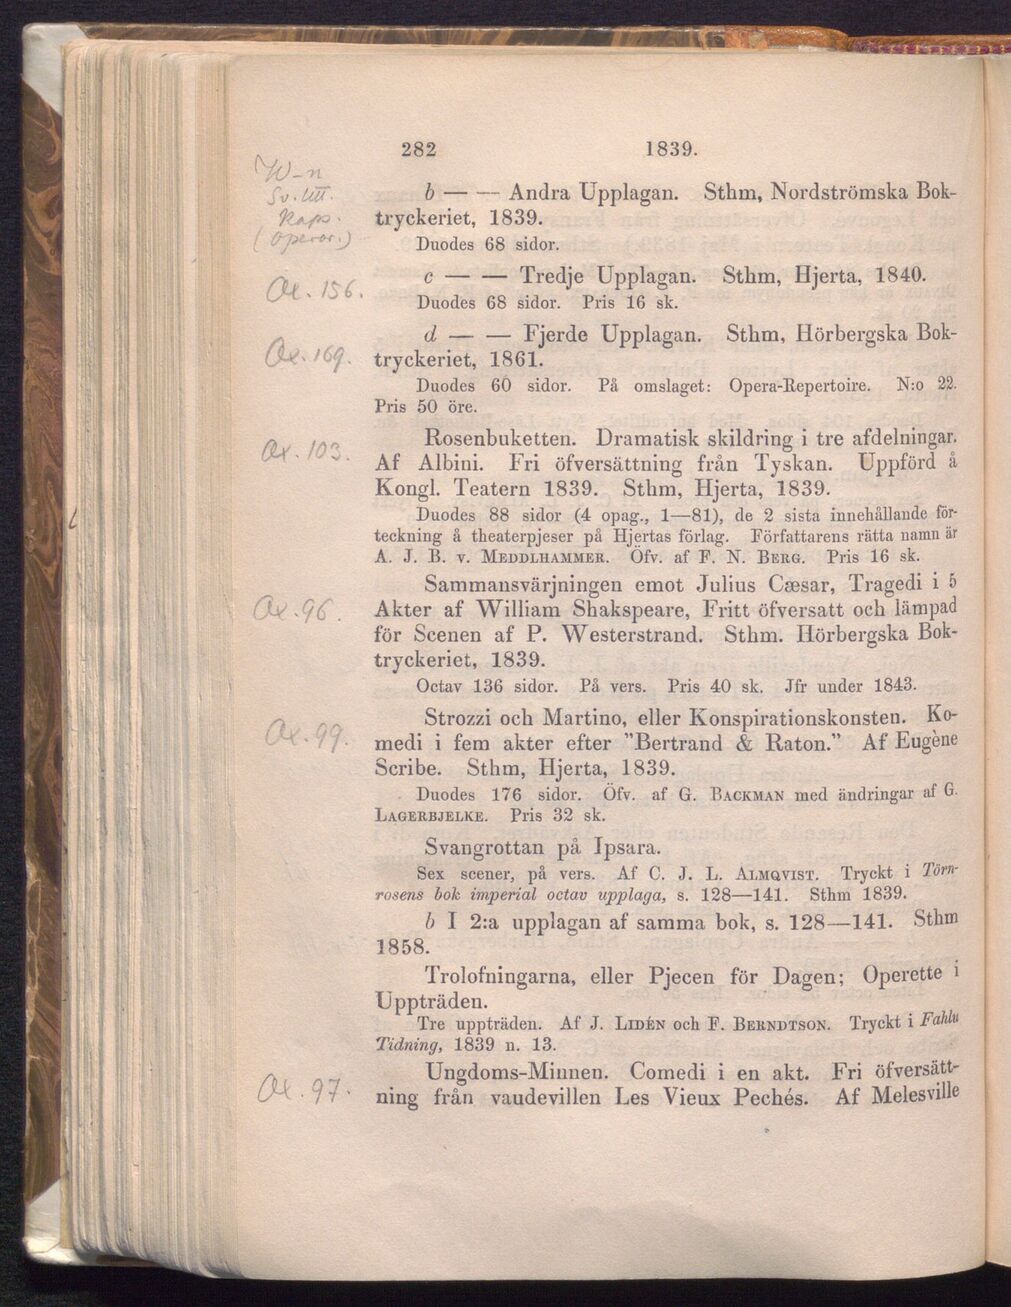 282 1839.
W-n
Sv. litt.
Kaps.
(operor.)
b — — Andra Upplagan. Sthm, Nordströmska Bok-
tryckeriet, 1839.
Duodes 68 sidor.
c — — Tredje Upplagan. Sthm, Hjerta, 1840.
Ox. 156.
Duodes 68 sidor. Pris 16 sk.
d — — Fjerde Upplagan. Sthm, Hörbergska Bok-
Ox. 169.
tryckeriet, 1861.
Duodes 60 sidor. På omslaget: Opera-Repertoire. N:o 22.
Pris 50 öre.
Rosenbuketten. Dramatisk skildring i tre afdelningar.
Ox. 103.
Af Albini. Fri öfversättning från Tyskan. Uppförd å
Kongl. Teatern 1839. Sthm, Hjerta, 1839.
Duodes 88 sidor (4 opag., 1—81), de 2 sista innehållande för-
teckning å theaterpjeser på Hjertas förlag. Författarens rätta namn är
A. J. B. v. Meddlhammer. Öfv. af F. N. Berg. Pris 16 sk.
Sammansvärjningen emot Julius Cæsar, Tragedi i 5
Ox. 96.
Akter af William Shakspeare, Fritt öfversatt och lämpad
för Scenen af P. Westerstrand. Sthm. Hörbergska Bok-
tryckeriet, 1839.
Octav 136 sidor. På vers. Pris 40 sk. Jfr under 1843.
Strozzi och Martino, eller Konspirationskonsten. Ko-
Ox. 99.
medi i fem akter efter ”Bertrand & Raton.” Af Eugène
Scribe. Sthm, Hjerta, 1839.
Duodes 176 sidor. Öfv. af G. Backman med ändringar af G.
Lagerbjelke. Pris 32 sk.
Svangrottan på Ipsara.
Sex scener, på vers. Af C. J. L. Almqvist. Tryckt i Törn-
rosens bok imperial octav upplaga, s. 128—141. Sthm 1839.
b I 2:a upplagan af samma bok, s. 128—141. Sthm
1858.
Trolofningarna, eller Pjecen för Dagen; Operette i
Uppträden.
Tre uppträden. Af J. Lidén och F. Berndtson. Tryckt i Fahlu
Tidning, 1839 n. 13.
Ungdoms-Minnen. Comedi i en akt. Fri öfversätt-
Ox. 97.
ning från vaudevillen Les Vieux Pechés. Af Melesville